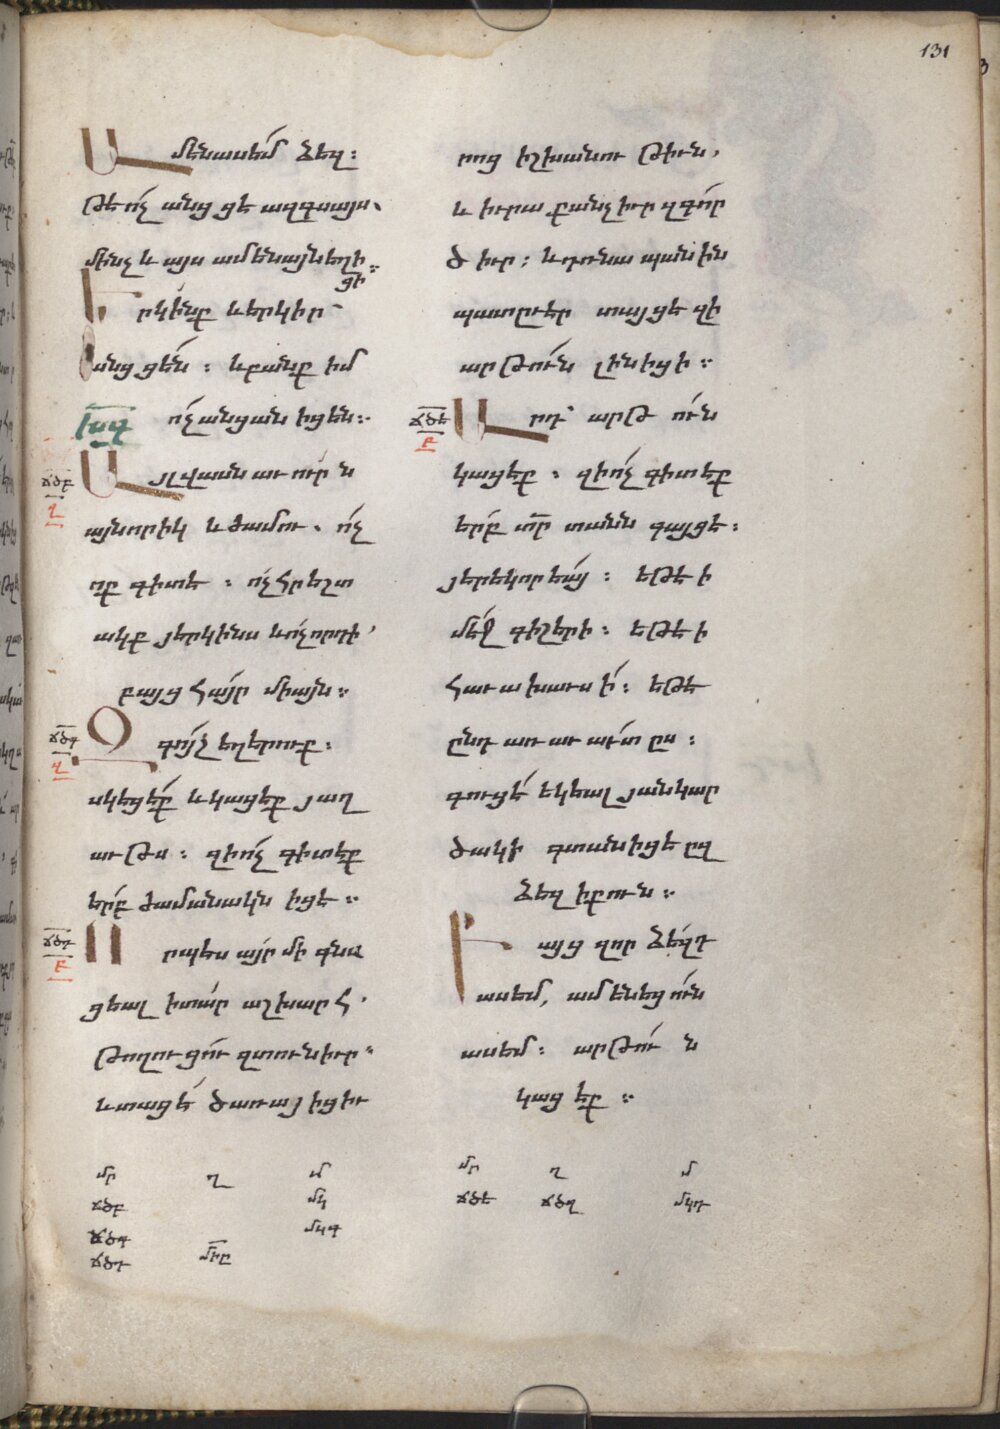 131
Ամէն ասեմ ձեզ:
թե ո՛չ անցցե ազգս այս.
մինչև այս ամենայն եղի
ցի
Երկինք և երկիր
անցցեն: և բանք իմ
ո՛չ անցանիցեն:
ճծբ
Այլ վասն աւուրն
այնորիկ և ժամու. ո՛չ
ոք գիտե: ո՛չ հրեշտ
ակք յերկինս և ո՛չ որդի,
բայց հայր միայն:
ճծգ
Զգո՛յշ եղերուք:
սկեցէ՛ք և կացեք յաղ
աւթս: զի ո՛չ գիտեք
երբ ժամանակն իցե:
ճծդ
Որպես այր մի գնա
ցեալ ի տար աշխարհ,
թողուցու զտուն իւր.
և տացե ծառայից իւ
րոց իշխանութիւն,
և իւրաքանչիւր զգոր
ծ իւր: և դռնապանին
պատըւեր տայցե զի
արթուն լինիցի:
ճծե
Արդ արթուն
կացեք: զի ո՛չ գիտեք
երբ տր տանն գայցե:
յերեկորեայ: եթե ի
մեջ գիշերի: եթե ի
հաւախաւսի: եթե
ընդ առաւաւտըս:
գուցե եկեալ յանկար
ծակի գտանիցե ըզ
ձեզ ի քուն:
Բայց զոր ձեզդ
ասեմ, ամենեցուն
ասեմ: արթուն
կացեք:
մր ղ մ
ճծբ մկ
ճծգ մկգ
ճծդ
մր ղ մ
ճծե ճծղ մկդ